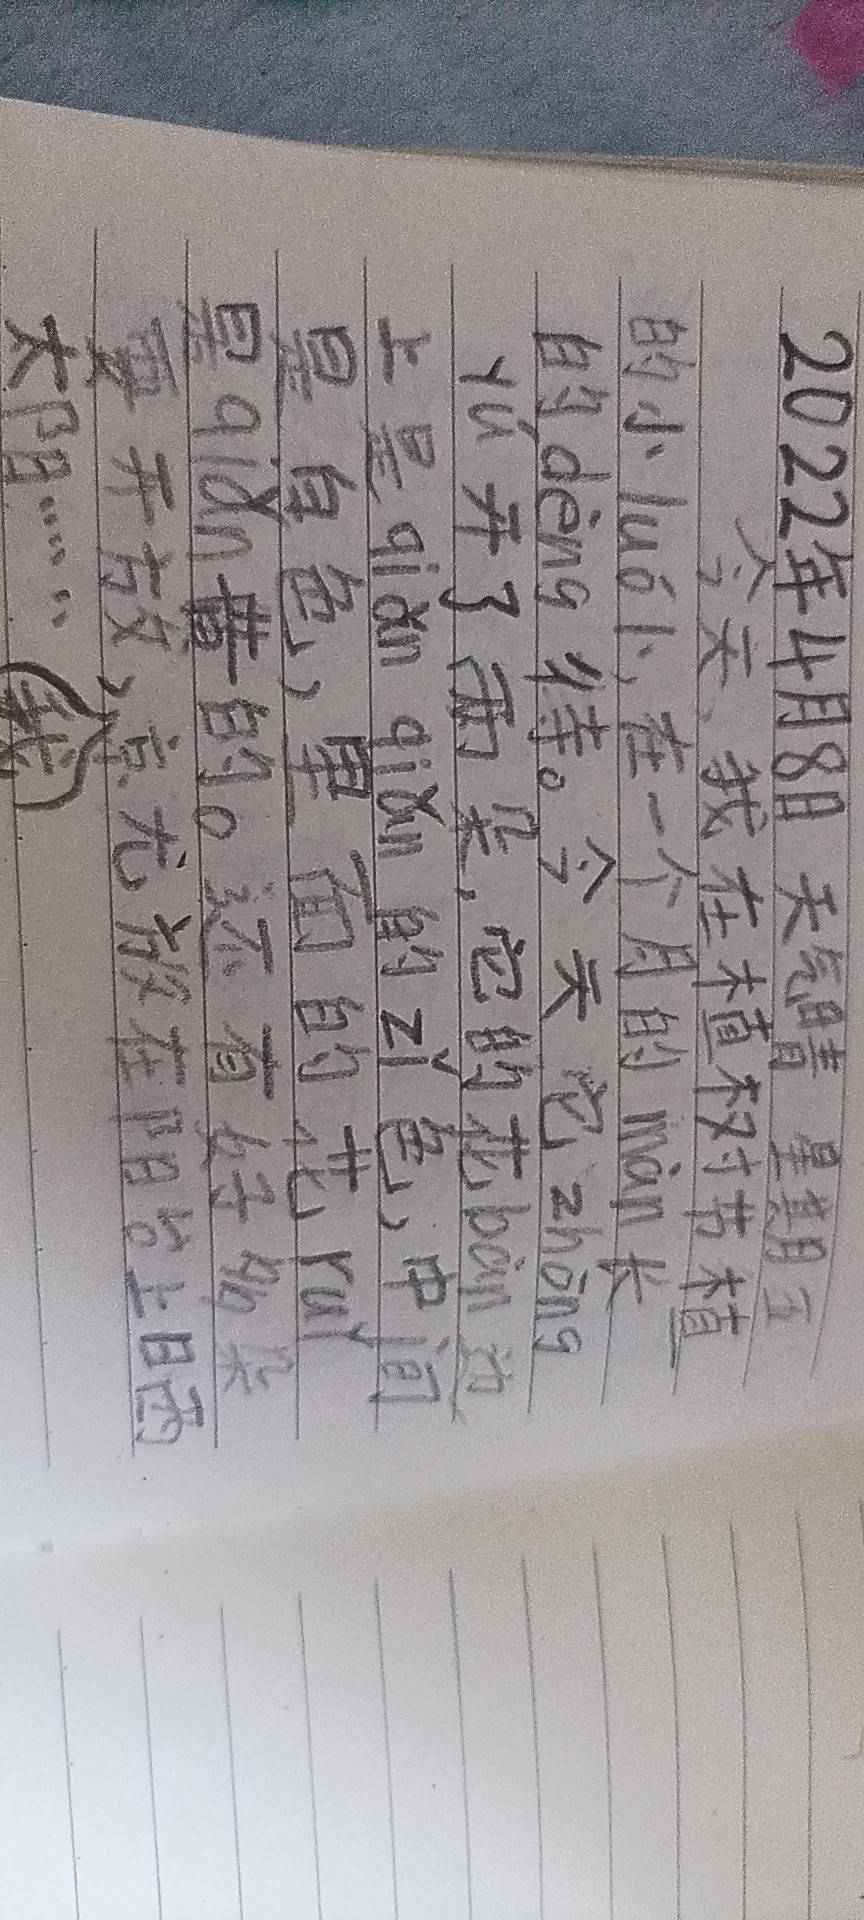 2022年4月8日 天气晴 星期五
今天，我在植树节植
的小luó卜，在一个月的màn长
的děng待。今天它zhōng
yú开了而朵，它的花bàn边
上是qiǎn qiǎn的zǐ色，中间
是白色，里面的花ruǐ
是qiǎn黄的。还有好几朵
要开放，京尤放在阳台上日西
太阳……